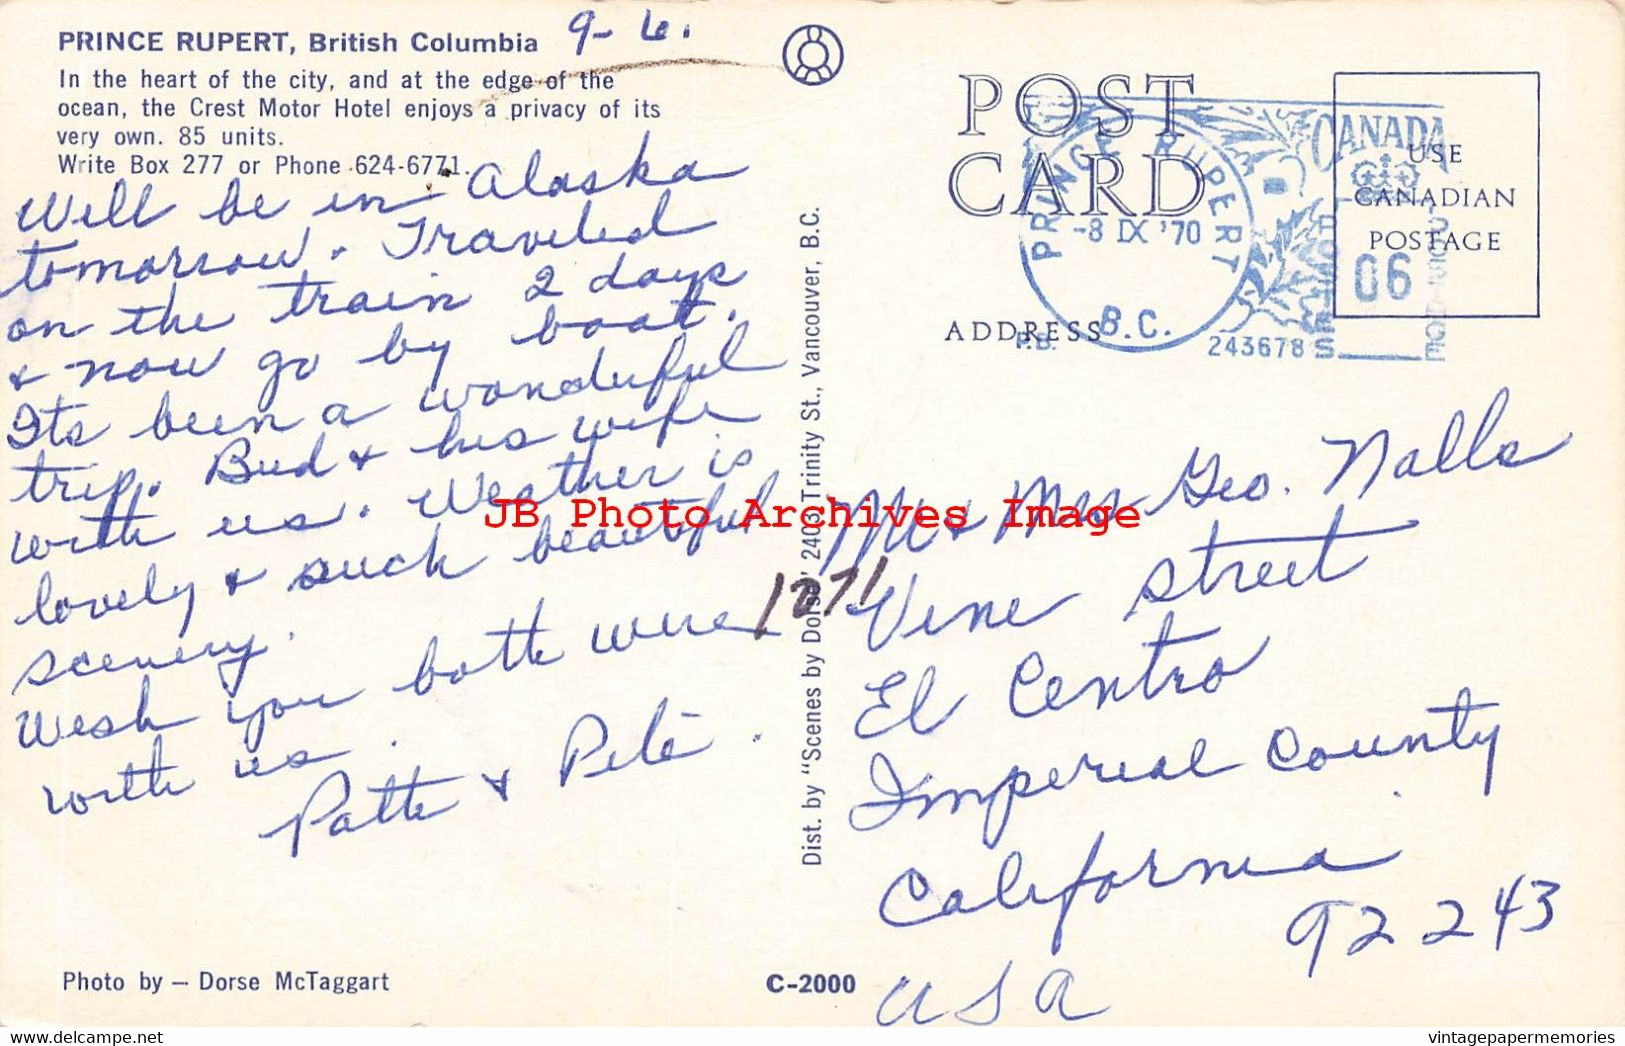 PRINCE RUPERT, British Columbia
9-6.
In the heart of the city, and at the edge of the
ocean, the Crest Motor Hotel enjoys a privacy of its
very own. 85 units.
Write Box 277 or Phone 624-6771.
Will be in Alaska
tomorrow. Traveled
on the train 2 days
& now go by boat.
Its been a wonderful
trip. Bud & his wife
with us. Weather is
lovely & such beautiful
scenery.
Wish you both were
with us.
Patte & Pete.
Photo by – Dorse McTaggart
Dist. by "Scenes by Dorse" 2403 Trinity St., Vancouver, B.C.
C-2000
POST
CARD
ADDRESS
USE
CANADIAN
POSTAGE
PRINCE RUPERT
-8 IX '70
B.C.
P.B.
243678
CANADA
06
POSTAGE-POSTES
Mr & Mrs Geo. Nalls
1271 Vine Street
El Centro
Imperial County
California
92243
USA
JB Photo Archives Image
vintagepapermemories